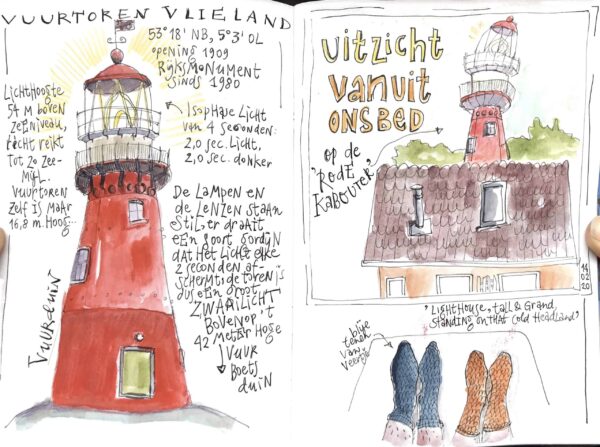 VUURTOREN VLIELAND
53°18' NB, 5°3' OL
opening 1909
RijksMonument
sinds 1980
LichtHoogte
54 m boven
zeeniveau,
reikt
tot 20 zee-
mijl.
Vuurtoren
zelf is maar
16,8 m hoog...
Isophase Licht
van 4 seconden:
2,0 sec. Licht,
2,0 sec. donker
De Lampen en
de Lenzen staan
stil, er draait
een soort gordijn
dat het licht elke
2 seconden af-
schermt; de toren is
dus een groot
ZWAAILICHT
Bovenop 't
42 Meter Hoge
Vuur
Boets
duin
Vuurduin
Uitzicht
vanuit
ONS BED
op de
"RODE
KABOUTER"
14
02
20
'LightHouse, tall & Grand,
Standing on that Cold Headland'
blije
tenen
van